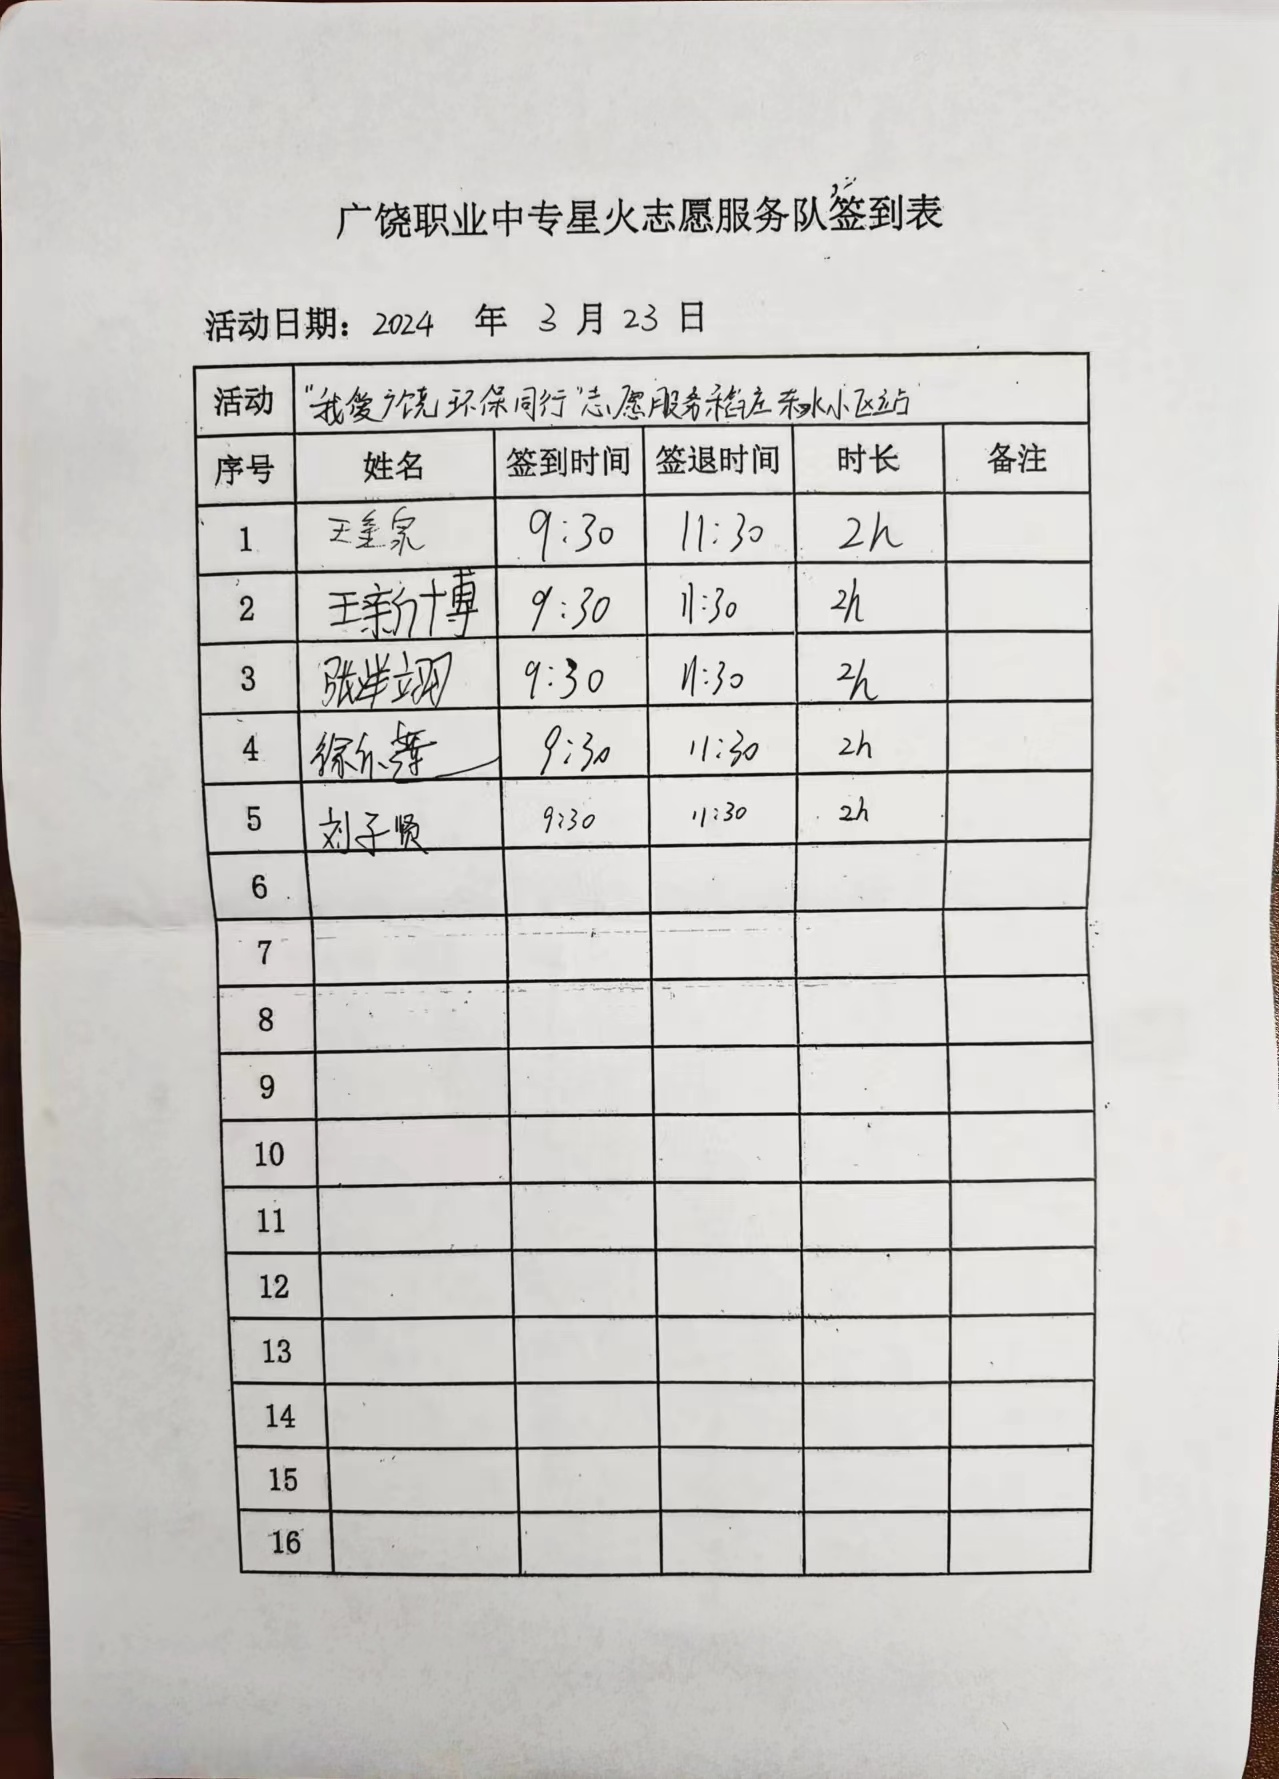 广饶职业中专星火志愿服务队签到表
活动日期：2024 年 3 月 23 日
活动 "我爱广饶 环保同行"志愿服务 小区站
序号 姓名 签到时间 签退时间 时长 备注
1 9:30 11:30 2h
2 王新博 9:30 11:30 2h
3 9:30 11:30 2h
4 9:30 11:30 2h
5 刘子贤 9:30 11:30 2h
6
7
8
9
10
11
12
13
14
15
16